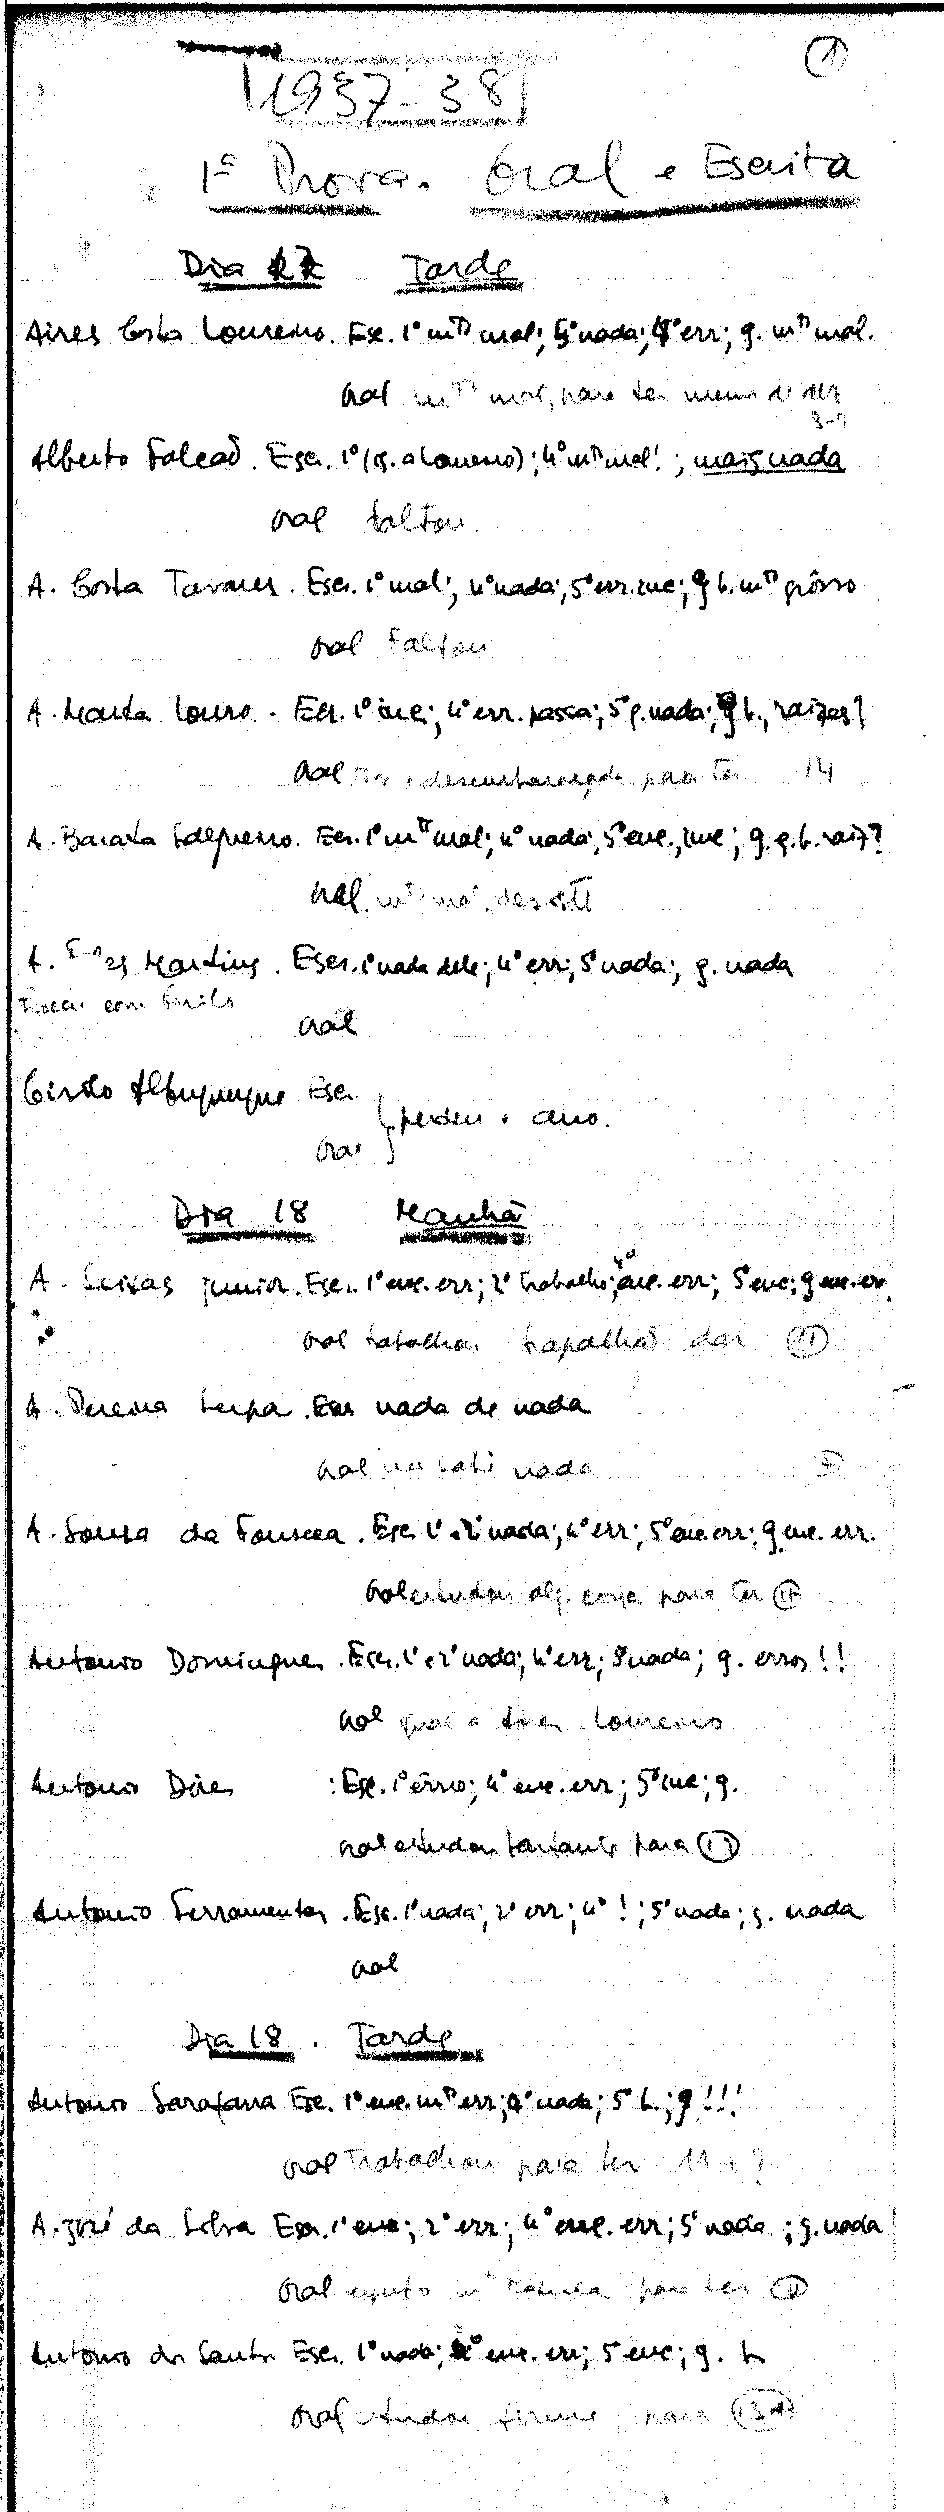 1
1937-38
1ª Prova. Oral e Escrita
Dia 17 Tarde
Aires Costa Lourenço. Esc. 1º mtº mal; 5º nada; 4º err; g. mtº mal.
Oral mtº mal, para ter menos de dez
8-9
Alberto Falcão. Esc. 1º (cf. a Lourenço); 4º mtº mal!; mais nada
Oral faltou
A. Costa Tavares. Esc. 1º mal; 4º nada; 5º err. inc; g b. mtº grôsso
Oral Faltou
A. Manta Louro. Esc. 1º inc; 4º err. passa; 5º q. nada; g b., raizes?
Oral desembaraçada para ter 14
A. Barata Salgueiro. Esc. 1º mtº mal; 4º nada; 5º enc., inc; g. q. b. raiz?
Oral
A. Martins. Esc. 1º nada dele; 4º err; 5º nada; g. nada
Trocar com Cirilo
Oral
Cirilo Albuquerque Esc.
perdeu o ano.
Oral
Dia 18 Manhã
A. Seixas Junior. Esc. 1º enc. err; 2º trabalho; 4º enc. err; 5º enc; g enc. err.
Oral trabalhou trapalhão dar 11
A. Pereira Serpa. Esc nada de nada
Oral não sabe nada
A. Sousa da Fonseca. Esc. 1º e 2º nada; 4º err; 5º enc. err; g. enc. err.
Oral estudou alg. coisa para ter
Antonio Domingues. Esc. 1º e 2º nada; 4º err; 5º nada; g. erros!!
Oral igual a Aires Lourenço
Antonio Dias : Esc. 1º êrro; 4º enc. err; 5º inc; g.
Oral estudou bastante para 11
Antonio Ferramentas. Esc. 1º nada; 2º err; 4º !; 5º nada; g. nada
Oral
Dia 18. Tarde
Antonio Sarafana Esc. 1º enc. mtº err; 4º nada; 5º b.; g!!!
Oral Trabalhou para ter 11 e ?
A. José da Silva Esc. 1º enc; 2º err; 4º enc. err; 5º nada; g. nada
Oral para ter
Antonio dos Santos Esc. 1º nada; 4º enc. err; 5º enc; g. b
Oral estudou firme para